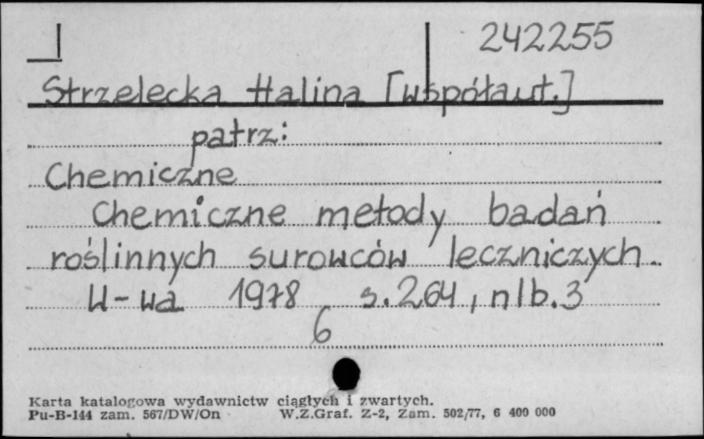 242255
Strzelecka Halina [współaut.]
patrz:
Chemiczne
Chemiczne metody badań
roślinnych surowców leczniczych.
W-wa 1978 s. 264, nlb. 3
6
Karta katalogowa wydawnictw ciągłych i zwartych.
Pu-B-144 zam. 567/DW/On W.Z.Graf. Z-2, Zam. 502/77, 6 400 000